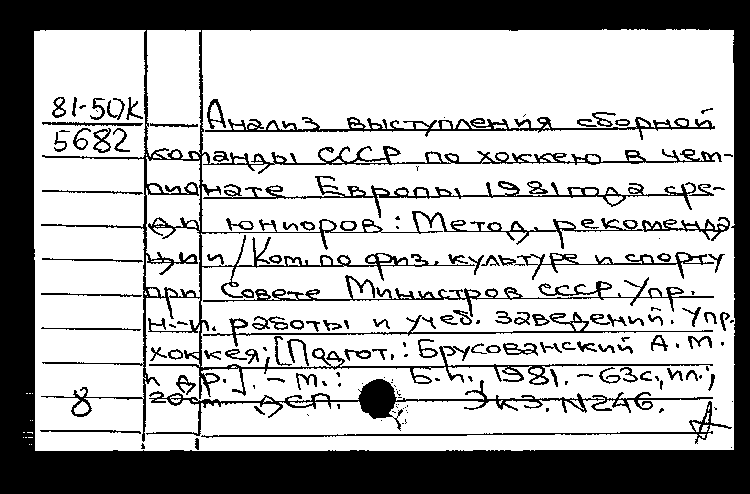 81-50К
5682
Анализ выступления сборной
команды СССР по хоккею в чем-
пионате Европы 1981 года сре-
ди юниоров: Метод. рекоменда
ции / Ком. по физ. культуре и спорту
при Совете Министров СССР. Упр.
н.-и. работы и учеб. заведений. Упр.
хоккея; [Подгот.: Брусованский А.М.
и др.]. - М.: Б.и., 1981. - 63с, ил.;
8 20см ДСП. Экз. N246.